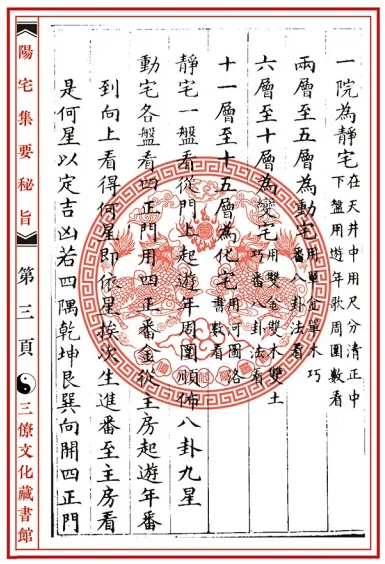 一院為靜宅在天井中用尺分清正中
下盤用遊年歌周圍數看
兩層至五層為動宅用單金單木巧
番八卦法看
六層至十層為變宅用雙金雙木雙土
巧番八卦法看
十一層至十五層為化宅用河圖洛
書數看
靜宅一盤看從門上起遊年周圍順佈八卦九星
動宅各盤看四正門用四正番金從主房起遊年番
到向上看得何星即依星挨次生進番至主房看
是何星以定吉凶若四隅乾坤艮巽向開四正門
陽宅集要秘旨
第三頁
三僚文化藏書館